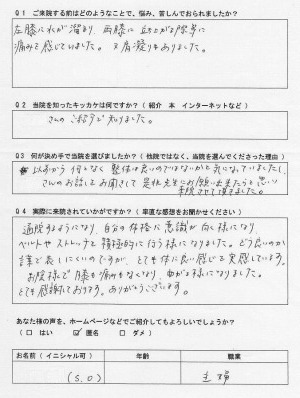 Q1 ご来院する前はどのようなことで、悩み、苦しんでおられましたか?
左膝に水が溜まり、両膝に立ち上がる際等に
痛みを感じていました。又肩凝りもありました。
Q2 当院を知ったキッカケは何ですか?(紹介 本 インターネットなど)
さんのご紹介で知りました。
Q3 何が決め手で当院を選びましたか?(他院ではなく、当院を選んでくださった理由)
以前から何となく整体は良いのではないかと気になっていましたし、
さんのお話しをお聞きして是非先生にお願い出来たらと思い
来院させて頂きました。
Q4 実際に来院されていかがですか?(率直な感想をお聞かせください)
通院するようになり、自分の体格に意識が向く様になり
ベルトやストレッチを積極的に行う様になりました。どう良いのか
言葉で表しにくいのですが、とても体に良い感じを実感しています。
お陰様で膝も痛みもなくなり、曲がる様になりました。
とても感謝しております。ありがとうございます。
あなた様の声を、ホームページなどでご紹介してもよろしいでしょうか?
(□ はい ☑ 匿名 □ ダメ)
お名前(イニシャル可) 年齢 職業
(S.O) 主婦